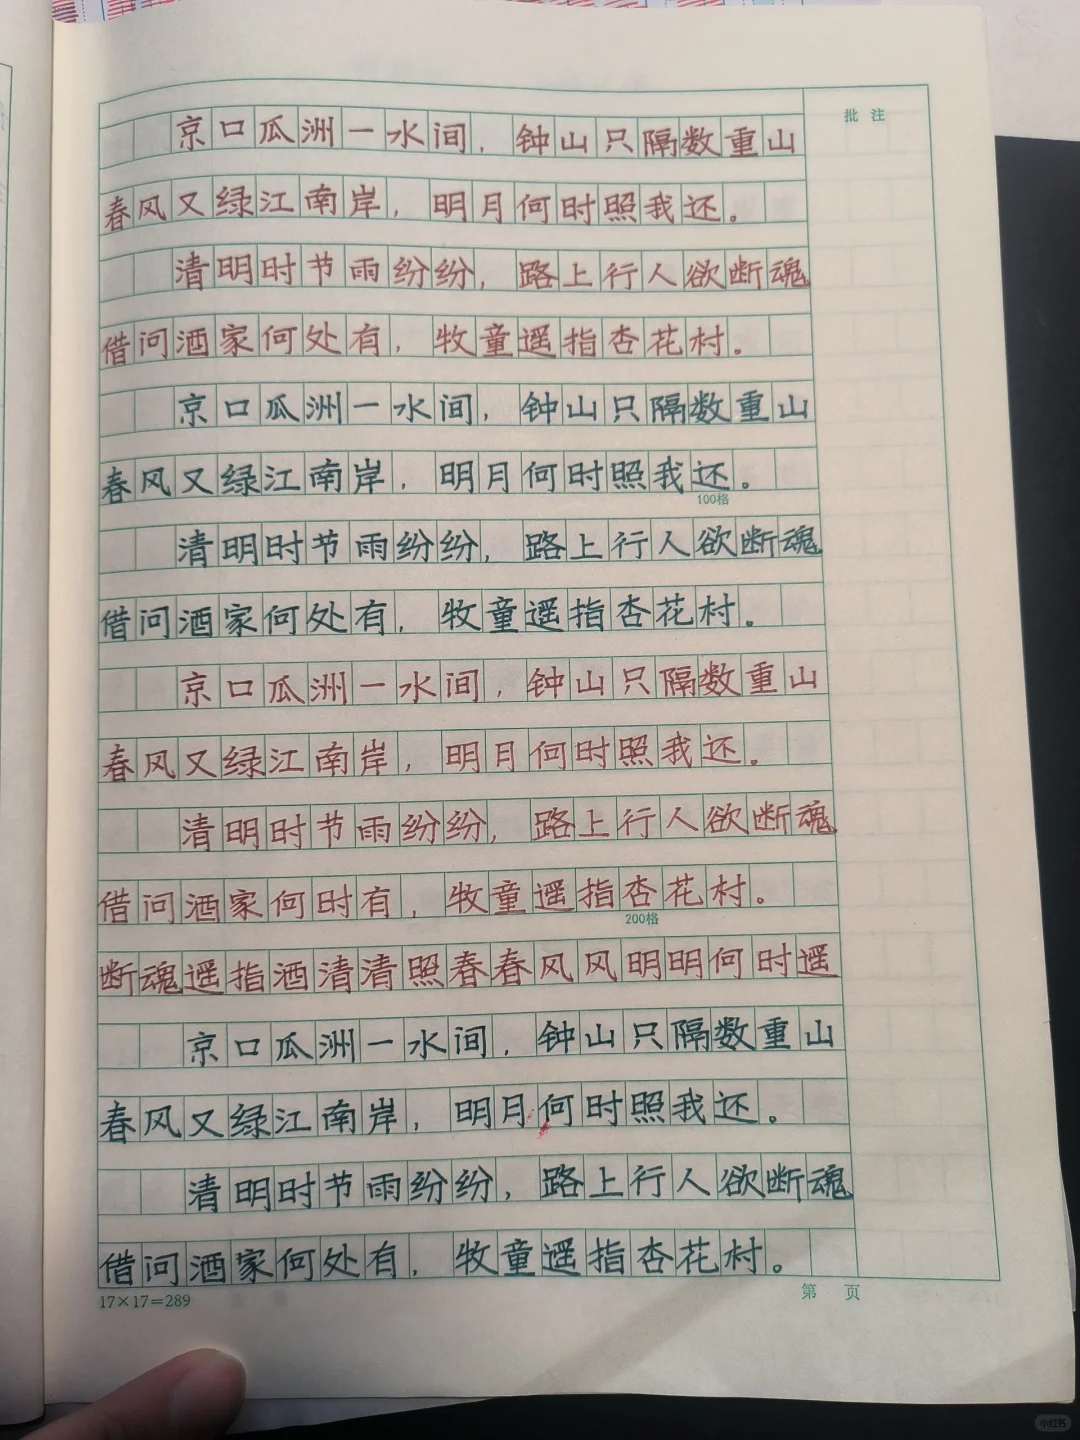 批注
京口瓜洲一水间，钟山只隔数重山
春风又绿江南岸，明月何时照我还。
清明时节雨纷纷，路上行人欲断魂
借问酒家何处有，牧童遥指杏花村。
京口瓜洲一水间，钟山只隔数重山
春风又绿江南岸，明月何时照我还。
100格
清明时节雨纷纷，路上行人欲断魂
借问酒家何处有，牧童遥指杏花村。
京口瓜洲一水间，钟山只隔数重山
春风又绿江南岸，明月何时照我还。
清明时节雨纷纷，路上行人欲断魂
借问酒家何时有，牧童遥指杏花村。
200格
断魂遥指酒清清照春春风风明明何时遥
京口瓜洲一水间，钟山只隔数重山
春风又绿江南岸，明月何时照我还。
清明时节雨纷纷，路上行人欲断魂
借问酒家何处有，牧童遥指杏花村。
17×17=289
第 页
小红书